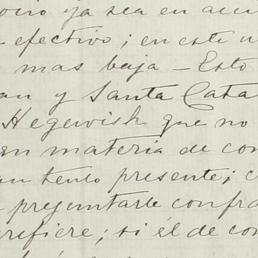 ocio ya sea en acci
efectivo; en este u
mas baja — Esto
an y Santa Cata
Hegewish que no
en materia de con
an tento presente; c
preguntarle confra
refiere; si él de con